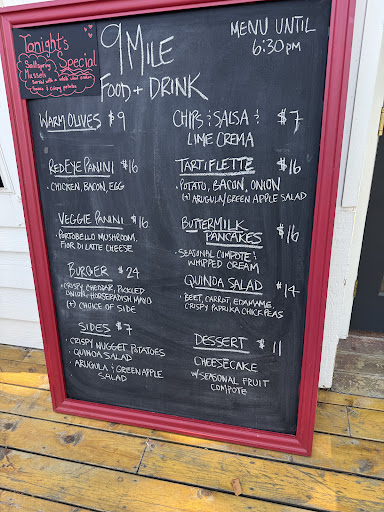 Tonight's
Special
Saltspring
Mussels
served with a white wine cream
+ fennel & crispy potatoes
9 MILE
FOOD + DRINK
MENU UNTIL
6:30 PM
WARM OLIVES $9
REDEYE PANINI $16
• CHICKEN, BACON, EGG
VEGGIE PANINI $16
• PORTOBELLO MUSHROOM,
FIOR DI LATTE CHEESE
BURGER $24
• CRISPY CHEDDAR, PICKLED
ONION + HORSERADISH MAYO
(+) CHOICE OF SIDE
SIDES $7
• CRISPY NUGGET POTATOES
• QUINOA SALAD
• ARUGULA & GREEN APPLE
SALAD
CHIPS & SALSA & $7
LIME CREMA
TARTIFLETTE $16
• POTATO, BACON, ONION
(+) ARUGULA/GREEN APPLE SALAD
BUTTERMILK
PANCAKES $16
• SEASONAL COMPOTE &
WHIPPED CREAM
QUINOA SALAD $14
• BEET, CARROT, EDAMAME,
CRISPY PAPRIKA CHICKPEAS
DESSERT $11
CHEESECAKE
W/ SEASONAL FRUIT
COMPOTE